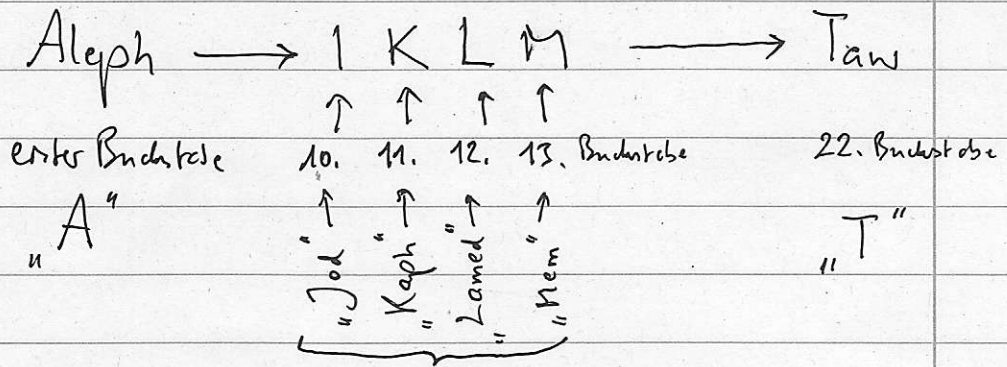 Aleph → I K L M → Taw
↑ ↑ ↑ ↑
erster Buchstabe 10. 11. 12. 13. Buchstabe 22. Buchstabe
↑ ↑ ↑ ↑
„A“ „Jod“ „Kaph“ „Lamed“ „Mem“ „T“